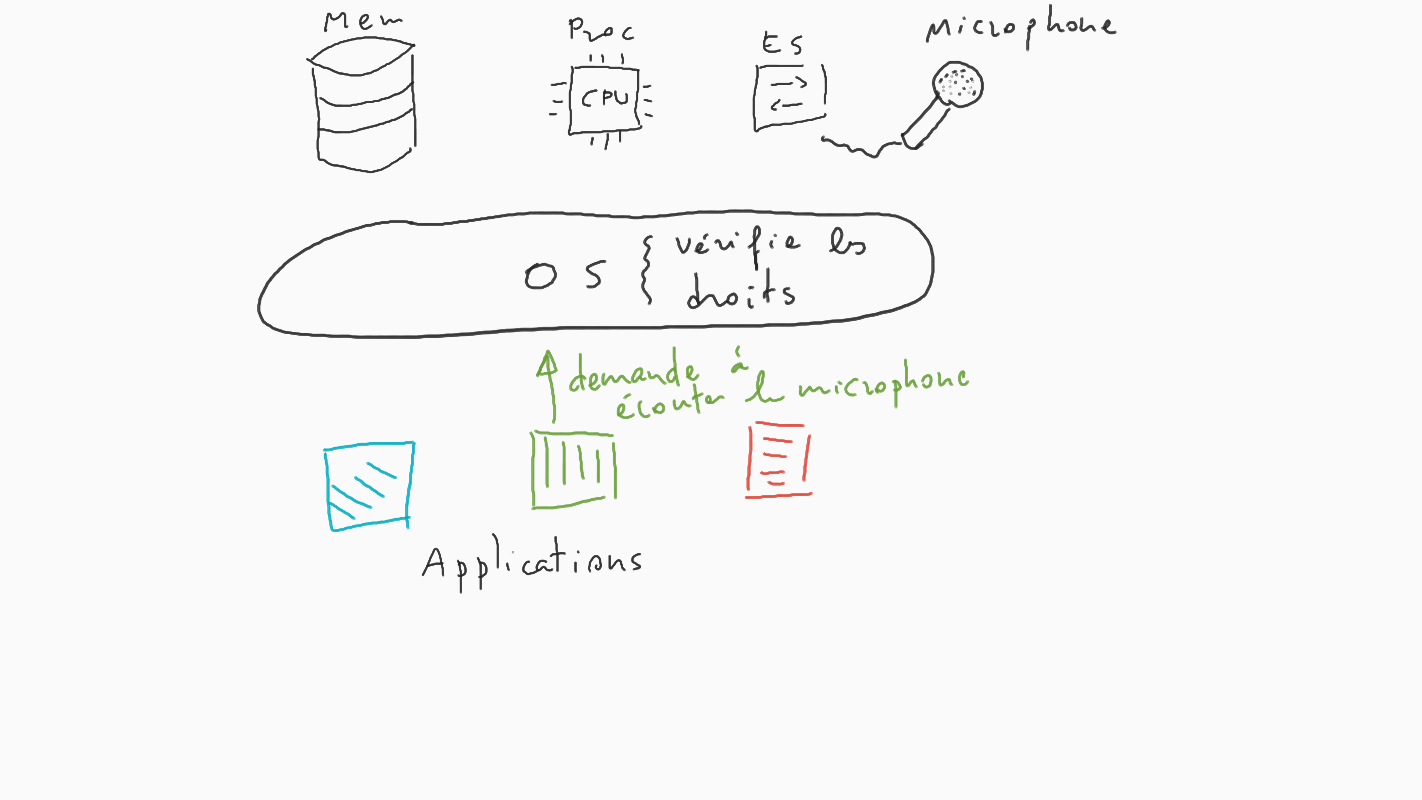 Mem
Proc
ES
Microphone
CPU
OS { vérifie les
droits
demande à
écouter le microphone
Applications